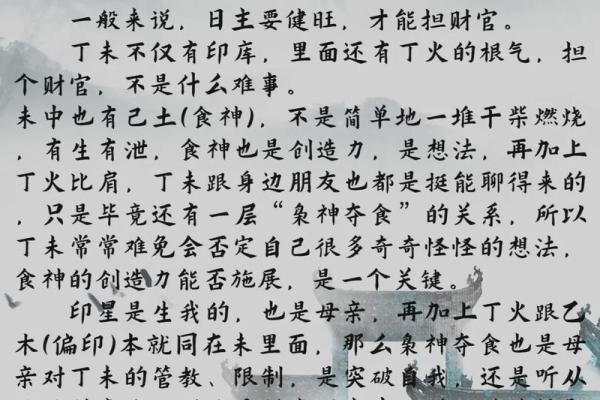 一般来说，日主要健旺，才能担财官。
丁未不仅有印库，里面还有丁火的根气，担
个财官，不是什么难事。
未中也有己土(食神)，不是简单地一堆干柴燃烧
，有生有泄，食神也是创造力，是想法，再加上
丁火比肩，丁未跟身边朋友也都是挺能聊得来的
，只是毕竟还有一层“枭神夺食”的关系，所以
丁未常常难免会否定自己很多奇奇怪怪的想法，
食神的创造力能否施展，是一个关键。
印星是生我的，也是母亲，再加上丁火跟乙
木(偏印)本就同在未里面，那么枭神夺食也是母
亲对丁未的管教、限制，是突破自我，还是听从